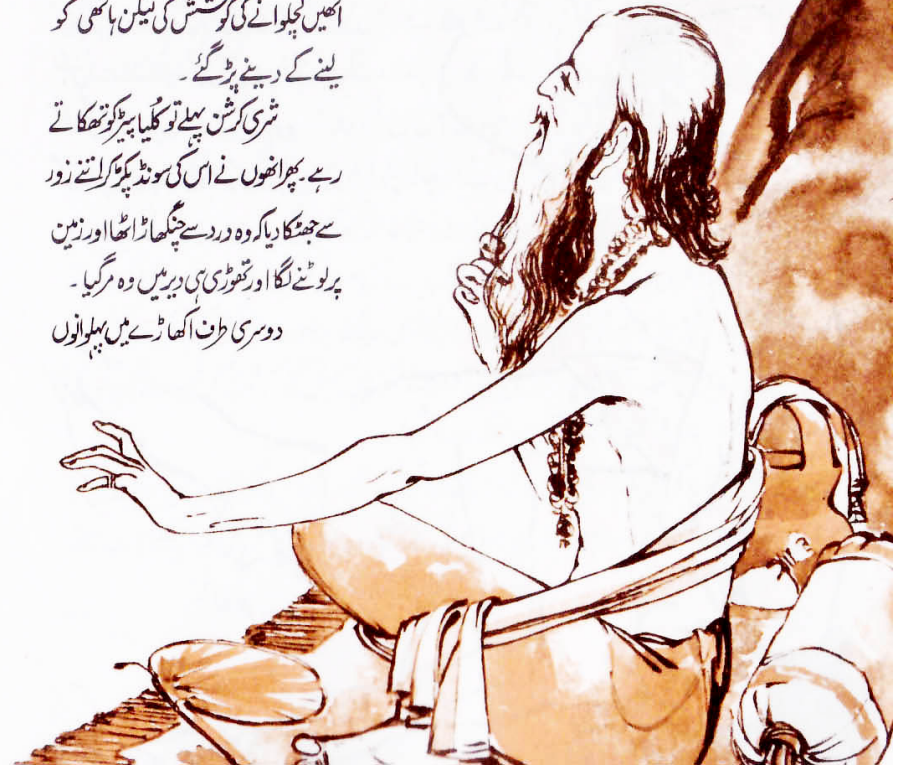 انھیں کچلوانے کی کوشش کی لیکن ہاتھی کو
لینے کے دینے پڑ گئے ۔
شری کرشن پہلے تو کُلیا پیڑ کو تھکاتے
رہے ۔ پھر انھوں نے اس کی سونڈ پکڑ کر اتنے زور
سے جھٹکا دیا کہ وہ درد سے چنگھاڑ اٹھا اور زمین
پر لوٹنے لگا اور تھوڑی ہی دیر میں وہ مر گیا ۔
دوسری طرف اکھاڑے میں پہلوانوں